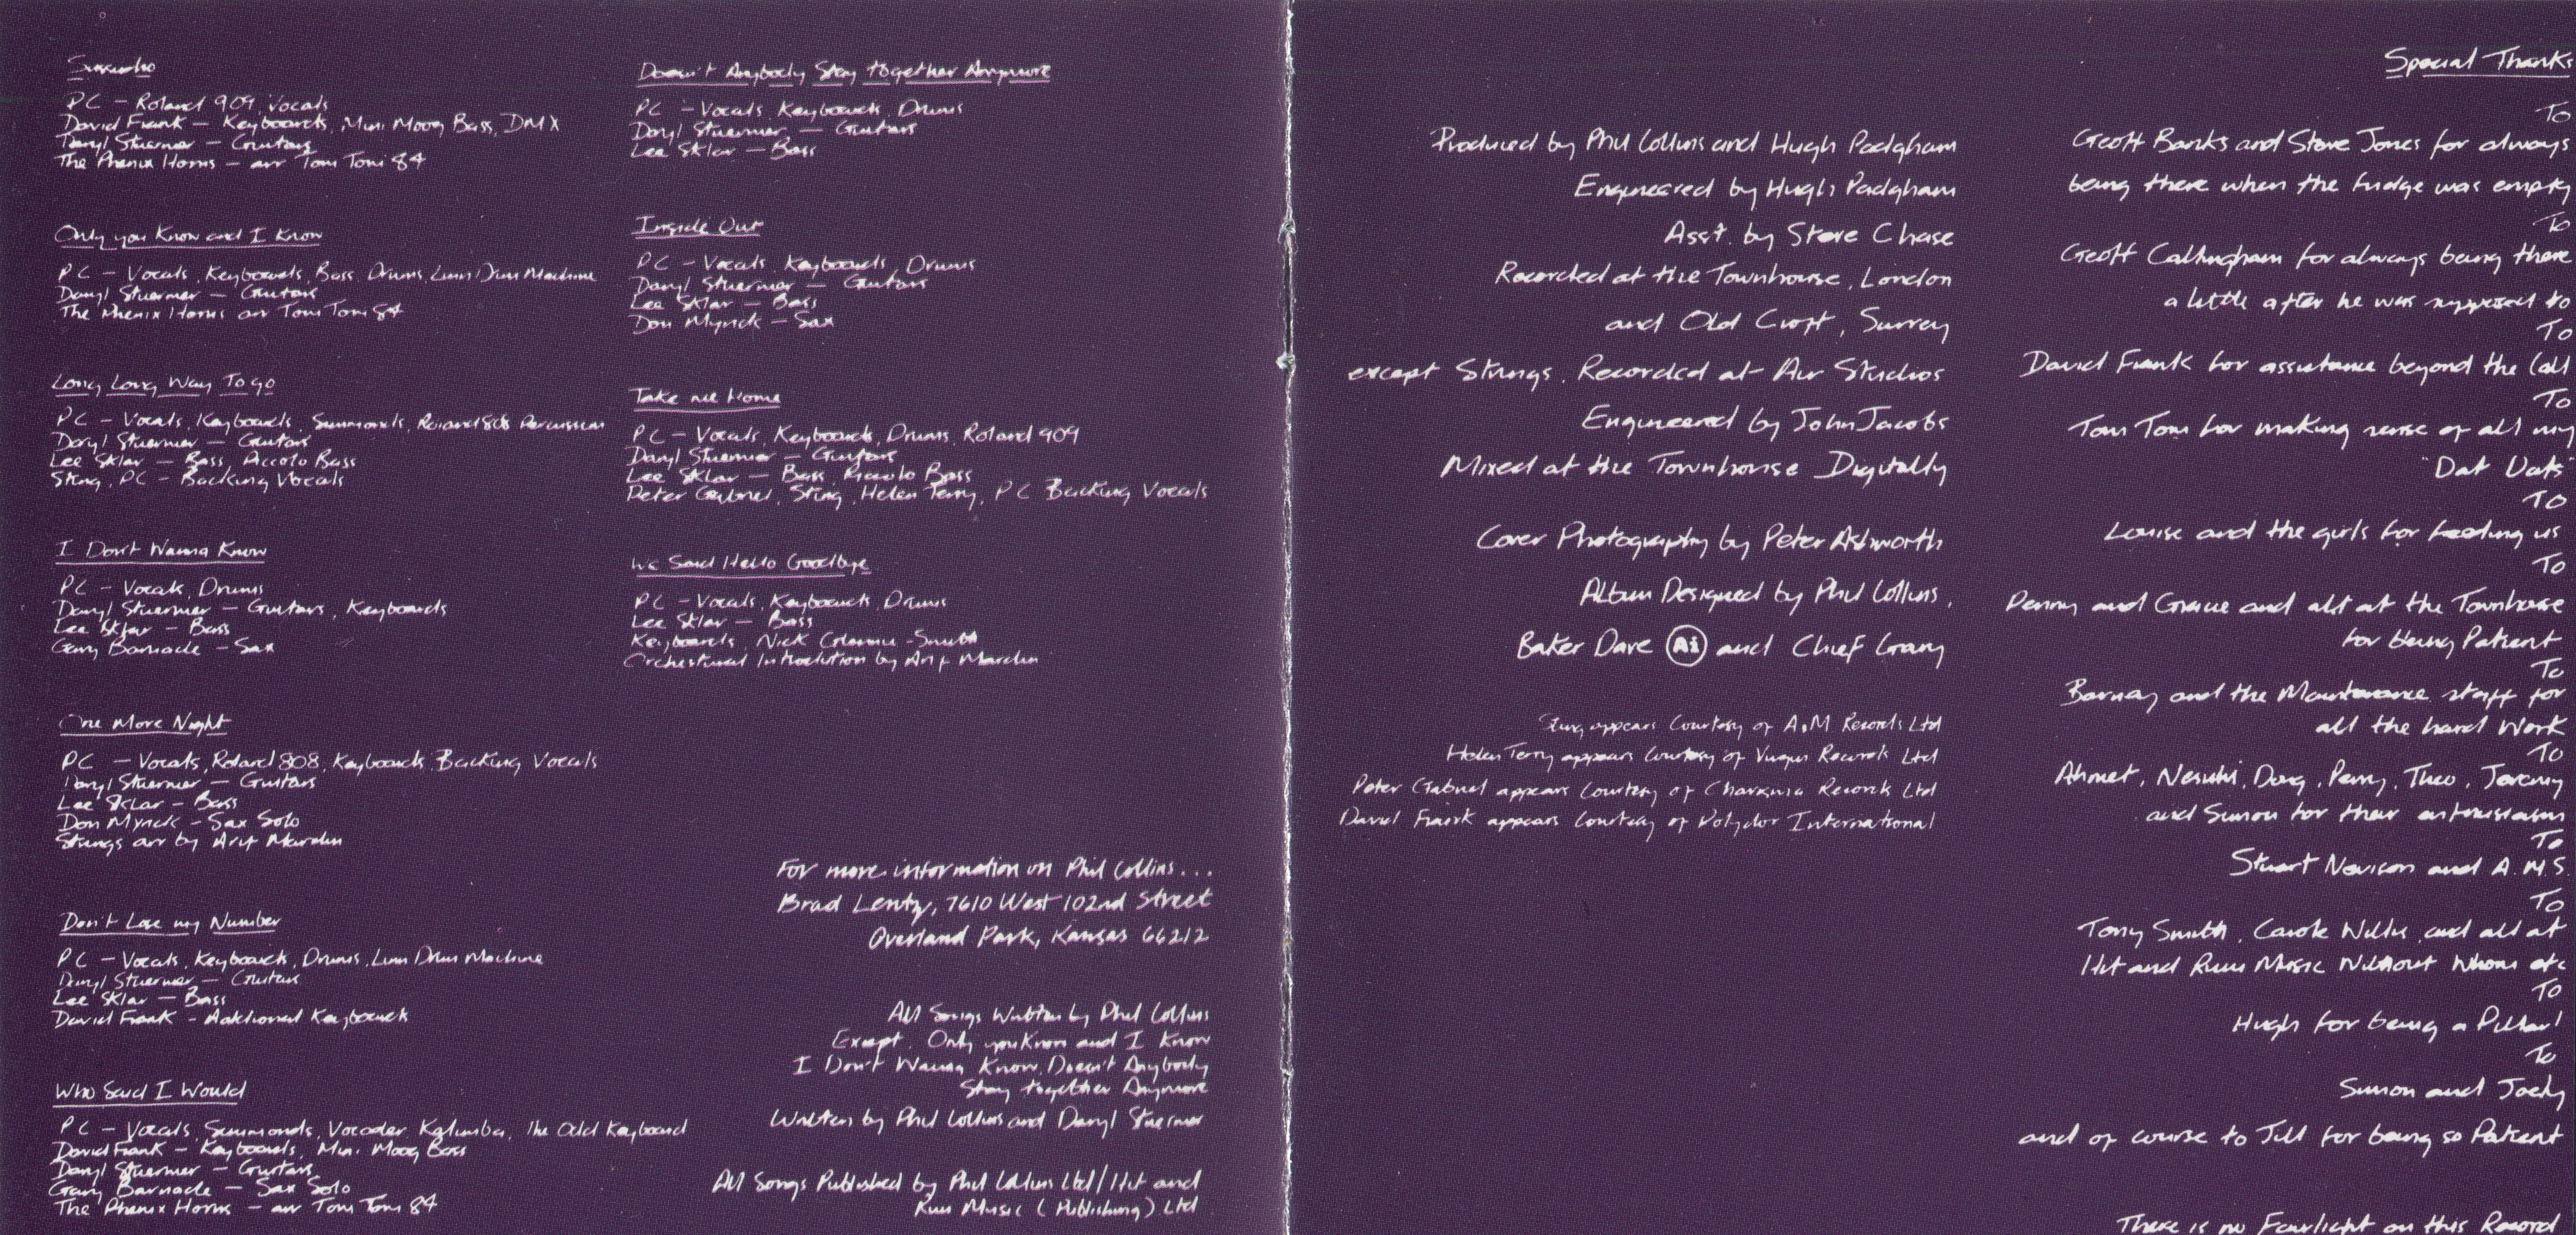 Sussudio
PC - Roland 909, Vocals
David Frank - Keyboards, Mini Moog Bass, DMX
Daryl Stuermer - Guitars
The Phenix Horns - arr Tom Tom 84
Only you Know and I Know
PC - Vocals, Keyboards, Bass, Drums, Linn Drum Machine
Daryl Stuermer - Guitars
The Phenix Horns arr Tom Tom 84
Long Long Way To go
PC - Vocals, Keyboards, Simmonds, Roland 808 Percussion
Daryl Stuermer - Guitars
Lee Sklar - Bass, Piccolo Bass
Sting, PC - Backing Vocals
I Don't Wanna Know
PC - Vocals, Drums
Daryl Stuermer - Guitars, Keyboards
Lee Sklar - Bass
Gary Barnacle - Sax
One More Night
PC - Vocals, Roland 808, Keyboards Backing Vocals
Daryl Stuermer - Guitars
Lee Sklar - Bass
Don Myrick - Sax Solo
Strings arr by Arif Mardin
Don't Lose my Number
PC - Vocals, Keyboards, Drums, Linn Drum Machine
Daryl Stuermer - Guitars
Lee Sklar - Bass
David Frank - Additional Keyboards
Who Said I Would
PC - Vocals, Simmonds, Vocoder Kalimba, The Odd Keyboard
David Frank - Keyboards, Mini Moog Bass
Daryl Stuermer - Guitars
Gary Barnacle - Sax Solo
The Phenix Horns - arr Tom Tom 84
Doesn't Anybody Stay together Anymore
PC - Vocals, Keyboards, Drums
Daryl Stuermer - Guitars
Lee Sklar - Bass
Inside Out
PC - Vocals, Keyboards, Drums
Daryl Stuermer - Guitars
Lee Sklar - Bass
Don Myrick - Sax
Take me Home
PC - Vocals, Keyboards, Drums, Roland 909
Daryl Stuermer - Guitars
Lee Sklar - Bass, Piccolo Bass
Peter Gabriel, Sting, Helen Terry, PC Backing Vocals
We Said Hello Goodbye
PC - Vocals, Keyboards, Drums
Lee Sklar - Bass
Keyboards, Nick Glennie-Smith
Orchestural Introdution by Arif Mardin
For more information on Phil Collins...
Brad Lentz, 7610 West 102nd Street
Overland Park, Kansas 66212
All Songs Written by Phil Collins
Except, Only you Know and I Know
I Don't Wanna Know, Doesn't Anybody
Stay together Anymore
Written by Phil Collins and Daryl Stuermer
All Songs Published by Phil Collins Ltd/Hit and
Run Music (Publishing) Ltd
Produced by Phil Collins and Hugh Padgham
Engineered by Hugh Padgham
Asst. by Steve Chase
Recorded at the Townhouse, London
and Old Croft, Surrey
except Strings, Recorded at Air Studios
Engineered by John Jacobs
Mixed at the Townhouse Digitally
Cover Photography by Peter Ashworth
Album Designed by Phil Collins,
Baker Dave Ai and Chief Grary
Sting appears Courtesy of A&M Records Ltd
Helen Terry appears Courtesy of Virgin Records Ltd
Peter Gabriel appears Courtesy of Charisma Records Ltd
David Frank appears Courtesy of Polydor International
Special Thanks
To
Geoff Banks and Steve Jones for always
being there when the fridge was empty
To
Geoff Callingham for always being there
a little after he was supposed to
To
David Frank for assistance beyond the Call
To
Tom Tom for making sense of all my
"Dat Dats"
To
Louise and the girls for feeding us
To
Penny and Gracie and all at the Townhouse
for being Patient
To
Barney and the Maintenance staff for
all the hard Work
To
Ahmet, Nesuhi, Doug, Perry, Theo, Jeremy
and Simon for their enthusiasm
To
Stuart Nevison and A.M.S.
To
Tony Smith, Carole Willis, and all at
Hit and Run Music Without Whom etc
To
Hugh for being a Pillar!
To
Simon and Joely
and of course to Jill for being so Patient
There is no Fairlight on this Record